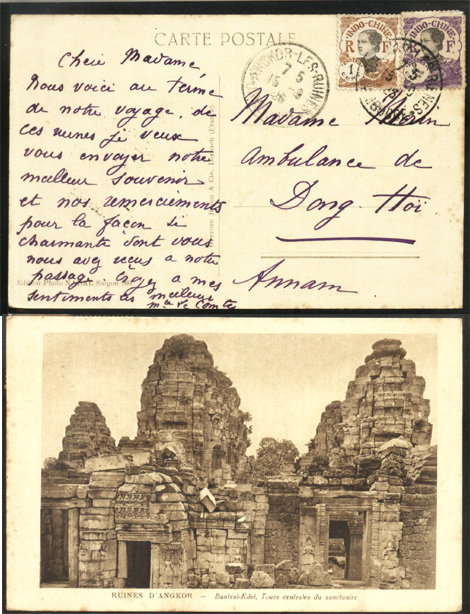 CARTE POSTALE
Chère Madame
Nous voici au terme
de notre voyage. de
ces ruines je veux
vous envoyer notre
meilleur souvenir
et nos remerciements
pour la façon si
charmante dont vous
nous avez reçus a notre
passage. Croyez a mes
sentiments les meilleurs
Edition Photo NADAL Saigon
INDO-CHINE
R F
1
INDO-CHINE
R F
ANGKOR-LES-RUINES
7 5
15
26
Madame
Ambulance de
Dong Hoï
Annam
RUINES D'ANGKOR — Banteai-Kdei, Tours centrales du sanctuaire